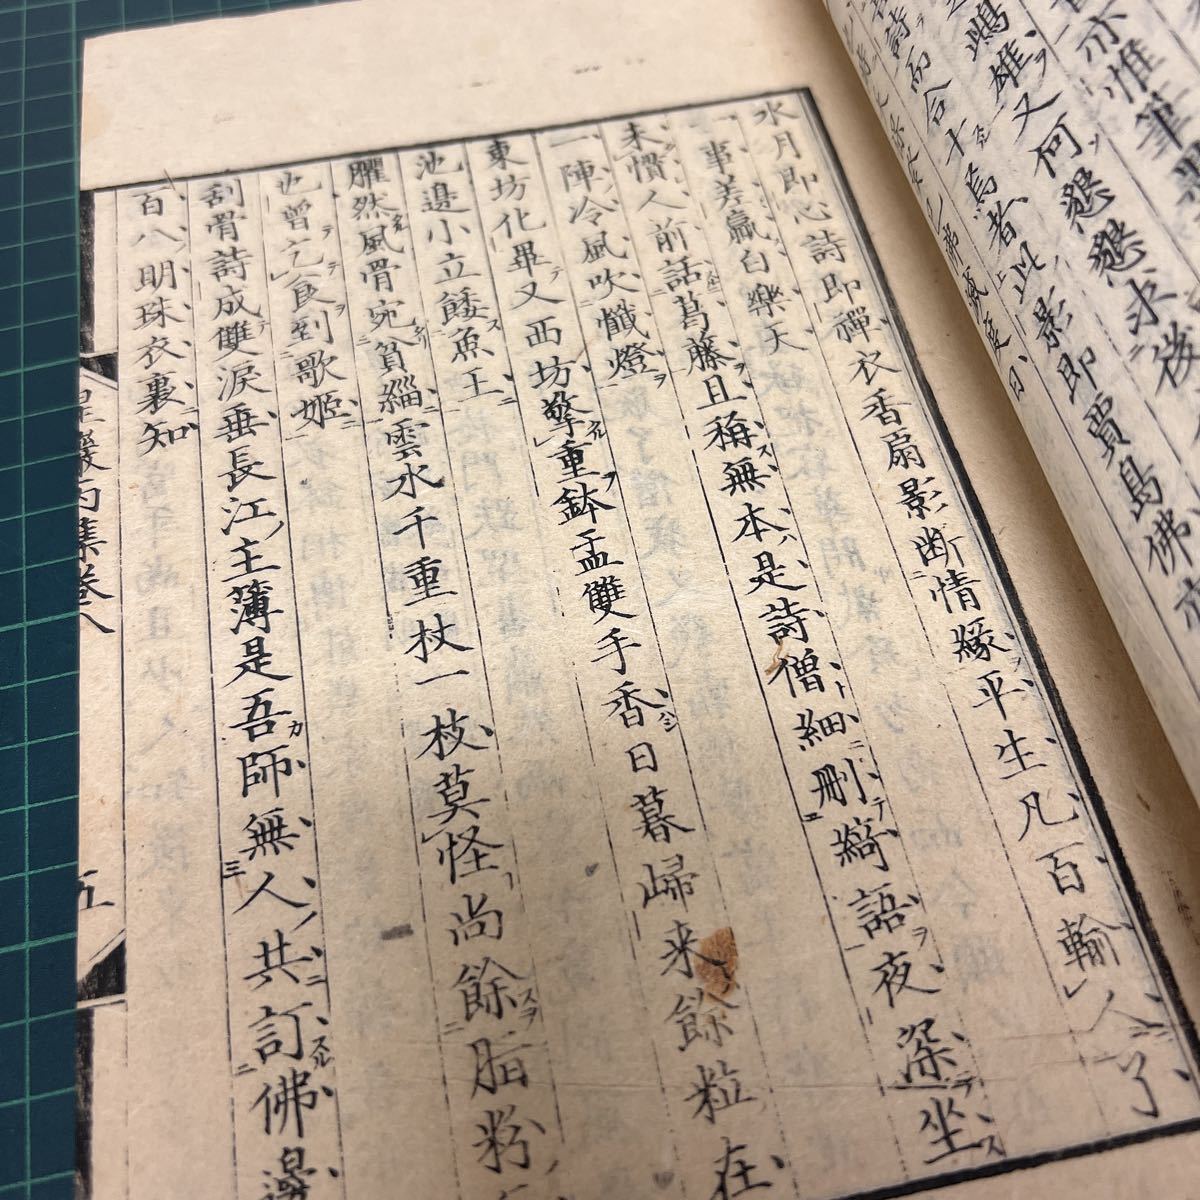 亦惟筆
鴟雄又何懇懇求後
詩而合十焉者此影即賈島佛
水月即心詩即禪衣香扇影斷情緣平生凡百輸人了
一事差贏白樂天
未慣人前話葛藤且稱無本是詩僧細刪綺語夜深坐
一陣冷風吹懺燈
東坊化畢又西坊擎重鉢盂雙手香日暮歸来餘粒在
池邊小立餧魚王
臞然風骨宛貧緇雲水千重杖一枝莫怪尚餘脂粉
也曾乞食到歌姬
刮骨詩成雙淚垂長江主薄是吾師無人共訂佛邊
百八明珠衣裏知
巖丙集卷八
五